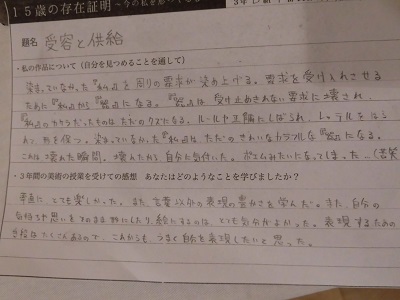 15歳の存在証明
題名 受容と供給
・私の作品について(自分を見つめることを通して)
染まっていなかった『私』を周りの要求が染め上げる。要求を受け入れさせる
ために『私』から『器』になる。『器』は受け止めきれない要求に壊され、
『私』のカケラだったものはただのクズになる。ルールや正義にしばられ、レッテルをはら
れて形を保つ。染まっていなかった『私』は、ただのきれいなカラフルな『器』になる。
これは壊れた瞬間。壊れたから自分に気付いた。ポエムみたいになってしまった…(苦笑
・3年間の美術の授業を受けての感想 あなたはどのようなことを学びましたか?
率直に、とても楽しかった。また、言葉以外の表現の豊かさを学んだ。また、自分の
気持ちや思いをそのまま物にしたり、絵にするのは、とても気分がよかった。表現するための
手段はたくさんあるので、これからも、うまく自分を表現したいと思った。